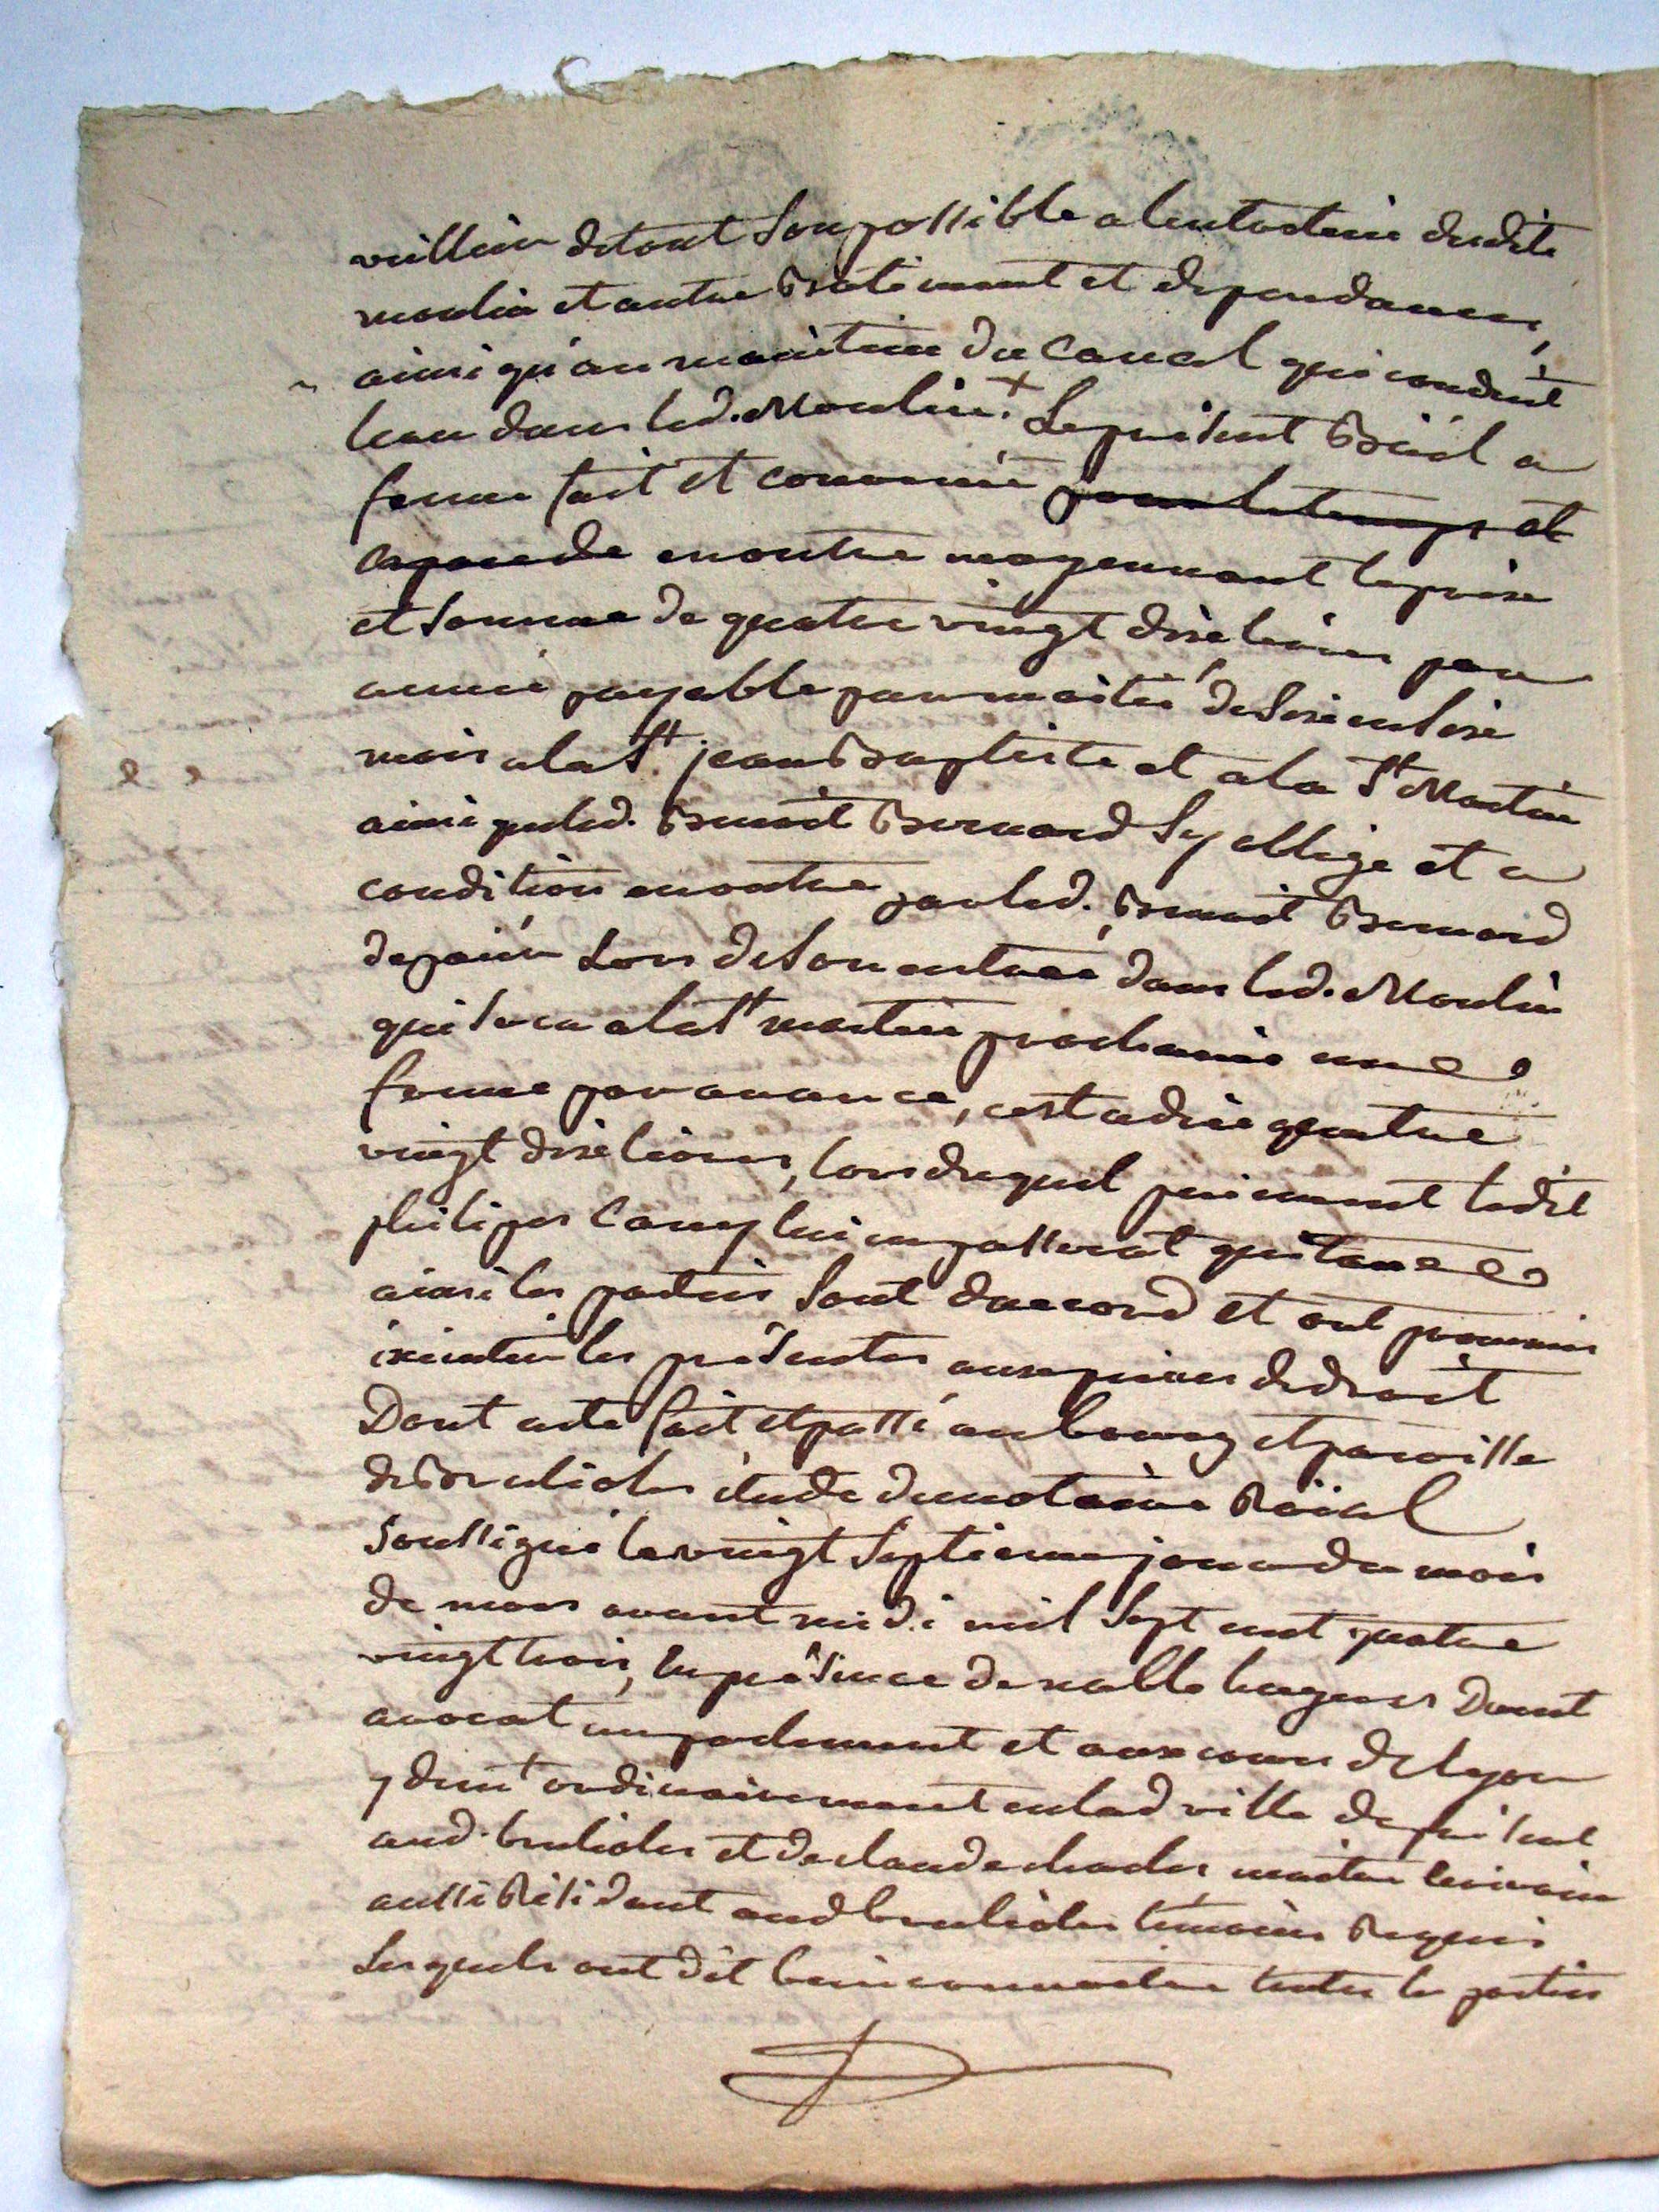 veillier de tout son possible a lentretenir dudit
moulin et autre Batiment et dependances,
ainsi qu'au maintien du canal qui conduit
leau dans led. Moulin. + Le present Bail a
ferme fait et convenu pour le temps et
espace de enoutre moyennant le prix
et somme de quatre vingt dix livres par
année payable par moitié de six en six
mois a la St jean Baptiste et a la St Martin
ainsi que led. Benoit Bernard sy oblige et a
condition enoutre par led. Benoit Bernard
de paier Lors de son entrée dans led. Moulin
qui sera a la St martin prochaine une
ferme par avance, cest a dire quatre
vingt dix livres, lors duquel paiement ledit
philipes Camy lui en passerat quitance
ainsi les parties sont daccord et ont promis
éxécuter les présentes aux peines de droit
Dont acte fait et passé au bourg et paroisse
de Brulioles étude du notaire Roïal
soussigné le vingt septieme jour du mois
de mars avant midi mil sept cent quatre
vingt trois, En présence de noble hugues
avocat en parlement et aux cours de lyon
y demt ordinairement en lad ville de présent
aud. brulioles et de claude charles maitre
aussi Résidant aud brulioles témoins Requis
Lesquels ont dit bien connoitre toutes les parties